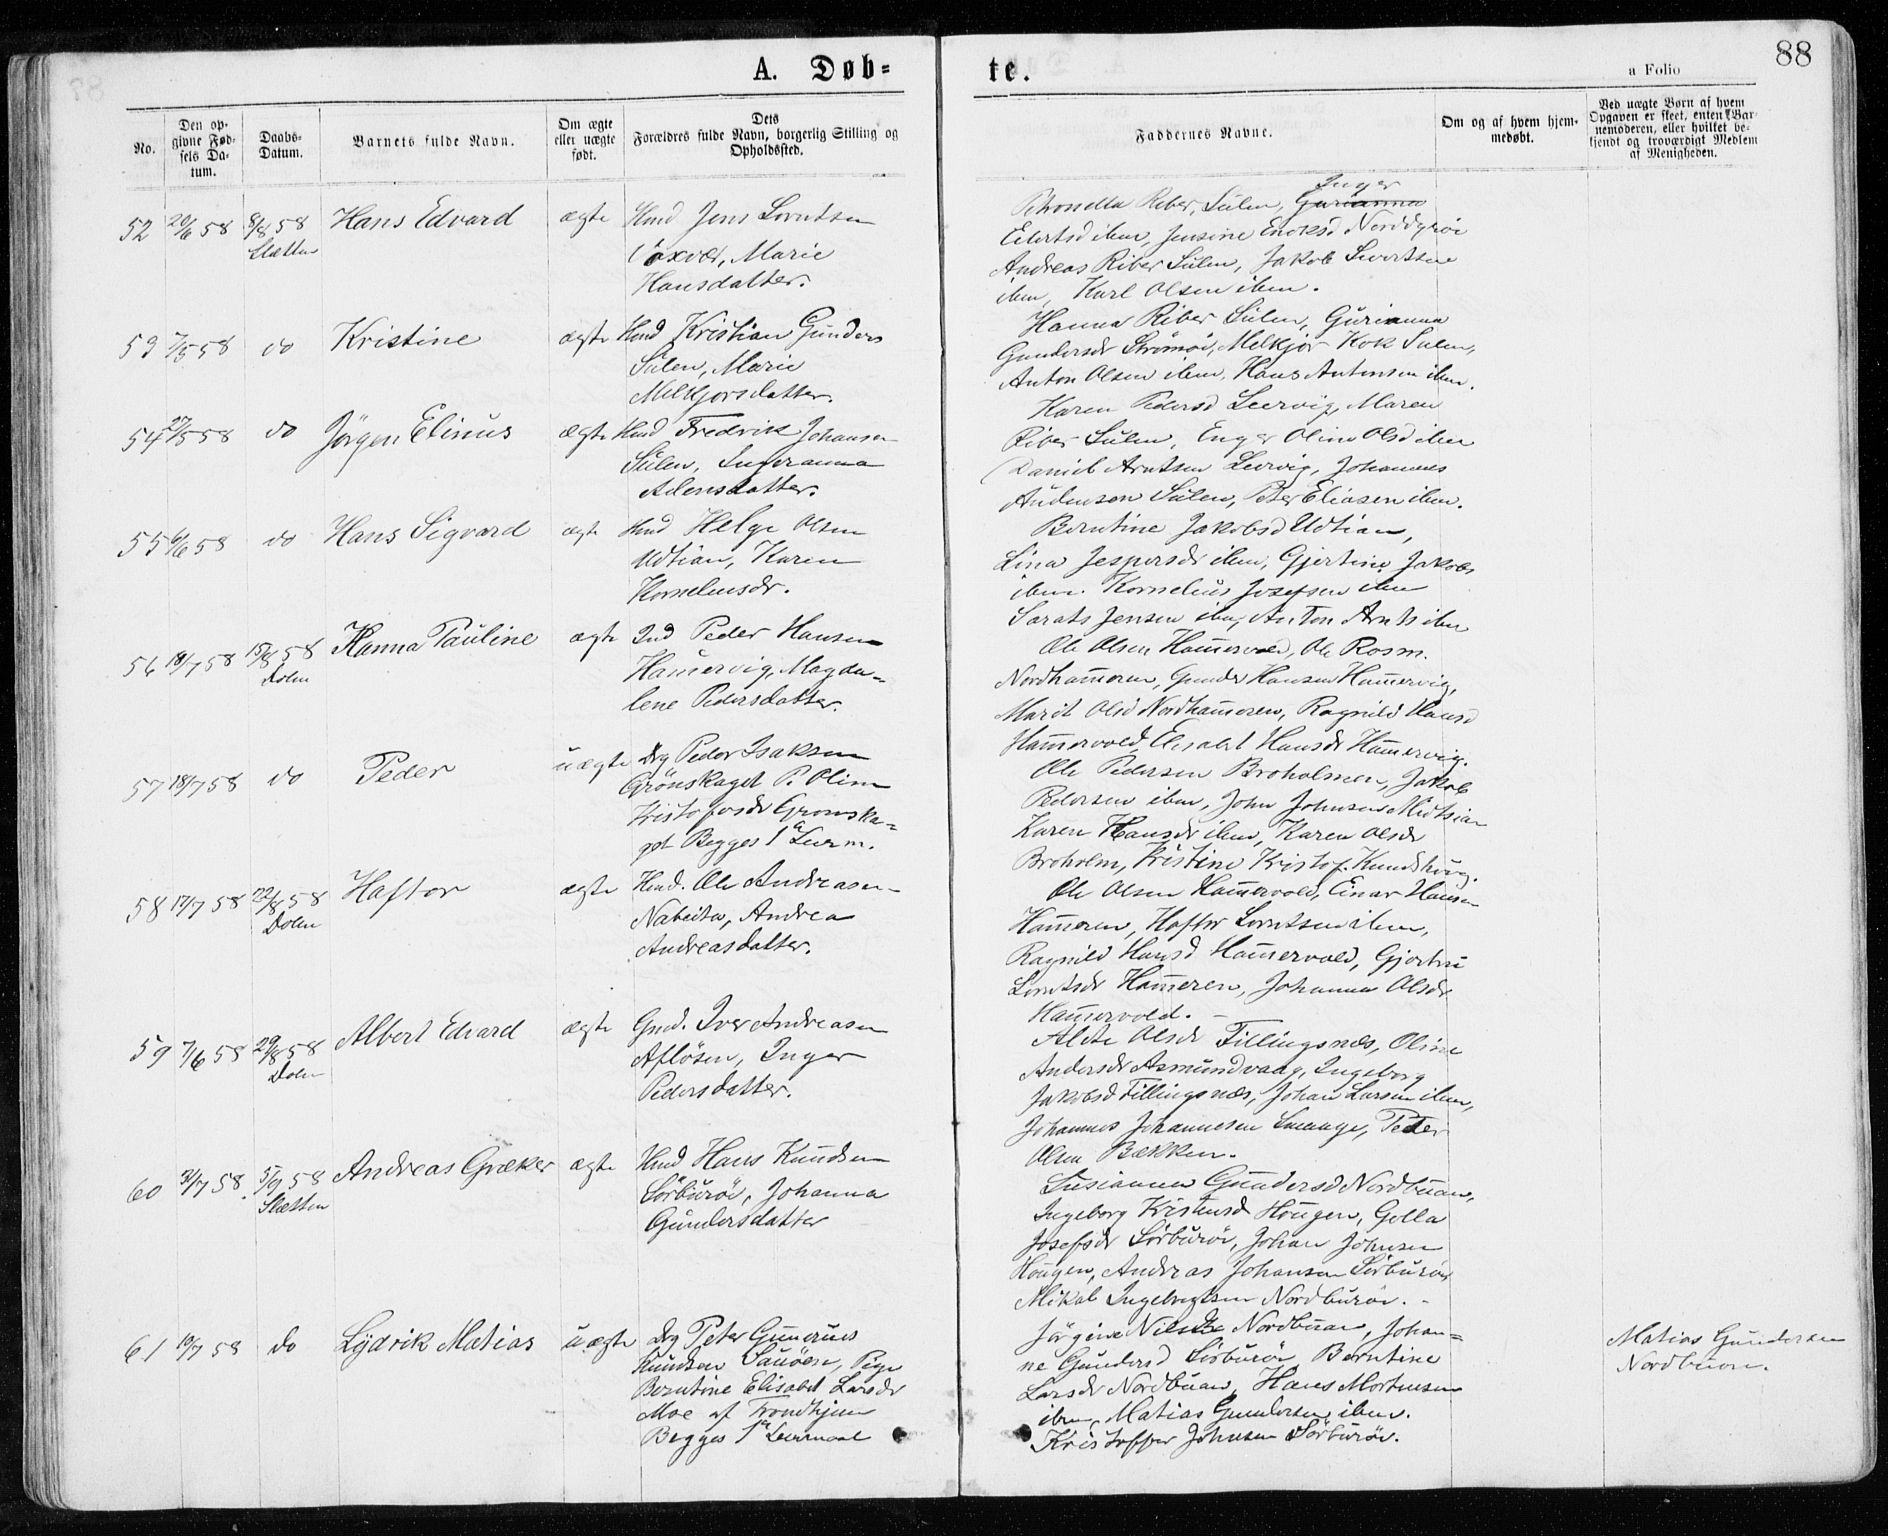 88
A. Døb-
te.
a Folio
No.
Den op-
givne Fød-
sels Da-
tum.
Daabs-
Datum.
Barnets fulde Navn.
Om ægte
eller uægte
født.
Dets
Forældres fulde Navn, borgerlig Stilling og
Opholdssted.
Faddernes Navne.
Om og af hvem hjem-
medøbt.
Ved uægte Børn af hvem
Opgaven er skeet, enten Bar-
nemoderen, eller hvilket be-
kjendt og troværdigt Medlem
af Menigheden.
52 20/6 58 8/8 58 Hans Edvard ægte Hmd Jens Lorntsen
Sletten
Marie
Hansdatter.
Inger
Petronella Riber, Sulen, Gurianna
Eilertsd ibm, Jensine Enoksd Norddyröi
Andreas Riber Sulen, Jakob Sivertsen
ibm, Karl Olsen ibm.
53 7/5 58 do Kristine ægte Hmd Kristian Gunders
Sulen, Marie
Melkjorsdatter.
Hanna Riber Sulen, Gurianna
Gundersdr Strömöi, Melkjör Kok Sulen,
Anton Olsen ibm, Hans Antonsen ibm.
54 27/5 58 do Jörgen Elinus ægte Hmd Fredrik Johansen
Sulen, Ingeranna
Adensdatter.
Karen Pedersd Leervig, Maren
Riber Sulen, Enger Oline Olsd ibm
Daniel Arntsen Leervig, Johannes
Audensen Sulen, Peter Eliasen ibm.
55 6/6 58 do Hans Sigvard ægte Hmd Helge Olsen
Udtian, Karen
Korneliusdr.
Berntine Jakobsd Udtian,
Lina Jespersdr ibm, Gjertine Jakobs
ibm. Kornelius Josefsen ibm
Jensen ibm, Anton Arnts ibm
56 18/7 58 15/8 58 Hanna Pauline ægte Ind Peder Hansen
Dolm
Hamervig, Magda-
lene Pedersdatter.
Ole Olsen Hamervold, Ole Rosm.
Nordhameren, Gunder Hansen Hamervig,
Marit Olsd Nordhameren, Ragnild Hansd
Hamervold, Elisabet Hansdr Hamervig.
57 18/7 58 do Peder uægte Drg Peder Isaksen
Grönskaget P. Oline
Kristofersdr Grönska-
get Begges 1ste Leierm.
Ole Pedersen Broholmen, Jakob
Pedersen ibm, John Johnsen Midtsian
Karen Hansdr ibm, Karen Olsdr
Broholm, Kristine Kristof. Kundshaug.
58 17/7 58 22/8 58 Haftor ægte Hmd. Ole Andreasen
Dolm
Nabeita, Andrea
Andreasdatter.
Ole Olsen Hamervold, Einar Hansen
Hameren, Haftor Lorntsen ibm,
Ragnild Hansd Hamervold, Gjertru
Lorntsdr Hameren, Johanna Olsdr
Hamervold. -
59 7/6 58 29/8 58 Albert Edvard ægte Gmd. Iver Andreasen
Dolm
Aflösen, Inger
Pedersdatter.
Aleta Olsdr Fillingsnæs, Oline
Andersdr Asmundvaag, Ingeborg
Jakobsd Fillingsnæs, Johan Larsen ibm,
Johannes Johannesen Smaage, Peder
Olsen Bækken.
60 31/7 58 5/9 58 Andreas Græker ægte Hmd Hans Knudsen
Sletten
Sörburöi, Johanna
Gundersdatter
Susianna Gundersd Nordbuan,
Ingeborg Kristensd Hougen, Golla
Josefsdr Sörburöi, Johan Johnsen
Hougen, Andreas Johansen Sörburöi
Mikal Ingebrigtsen Nordburöi. -
61 10/7 58 do Lydrik Matias uægte Drg Peter Gunerius
Knudsen Sauöen, Pige
Berntine Elisabet Larsdr
Moe af Trondhjem
Begges 1ste Leiermaal
Jörgine Nilsdr Nordbuan, Johan-
ne Gundersd Sörburöi Berntine
Larsdr Nordbuan, Hans Mortensen
ibm, Matias Gundersen ibm.
Kristoffer Johnsen Sörburöi.
Matias Gundersen
Nordbuan.